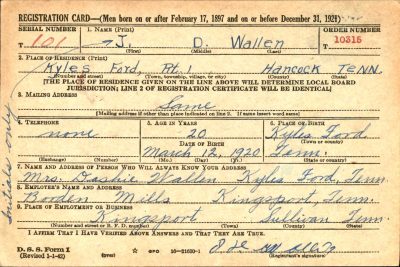 REGISTRATION CARD—(Men born on or after February 17, 1897 and on or before December 31, 1921)
SERIAL NUMBER 1. NAME (Print) ORDER NUMBER
T 101 J. D. Wallen 10315
(First) (Middle) (Last)
2. PLACE OF RESIDENCE (Print)
Kyles Ford, Rt. 1 Hancock Tenn.
(Number and street) (Town, township, village, or city) (County) (State)
[THE PLACE OF RESIDENCE GIVEN ON THE LINE ABOVE WILL DETERMINE LOCAL BOARD
JURISDICTION; LINE 2 OF REGISTRATION CERTIFICATE WILL BE IDENTICAL]
3. MAILING ADDRESS
Same
[Mailing address if other than place indicated on line 2. If same insert word same]
4. TELEPHONE 5. AGE IN YEARS 6. PLACE OF BIRTH
none 20 Kyles Ford,
DATE OF BIRTH (Town or county)
March 12, 1920 Tenn.
(Exchange) (Number) (Mo.) (Day) (Yr.) (State or country)
7. NAME AND ADDRESS OF PERSON WHO WILL ALWAYS KNOW YOUR ADDRESS
Mrs. Wallen, Kyles Ford, Tenn.
8. EMPLOYER'S NAME AND ADDRESS
Borden Mills Kingsport, Tenn.
9. PLACE OF EMPLOYMENT OR BUSINESS
Kingsport Sullivan Tenn.
(Number and street or R. F. D. number) (Town) (County) (State)
I AFFIRM THAT I HAVE VERIFIED ABOVE ANSWERS AND THAT THEY ARE TRUE.
D. S. S. Form 1
(Revised 1-1-42) (over) 16—21630-1 (Registrant's signature)
Initials only